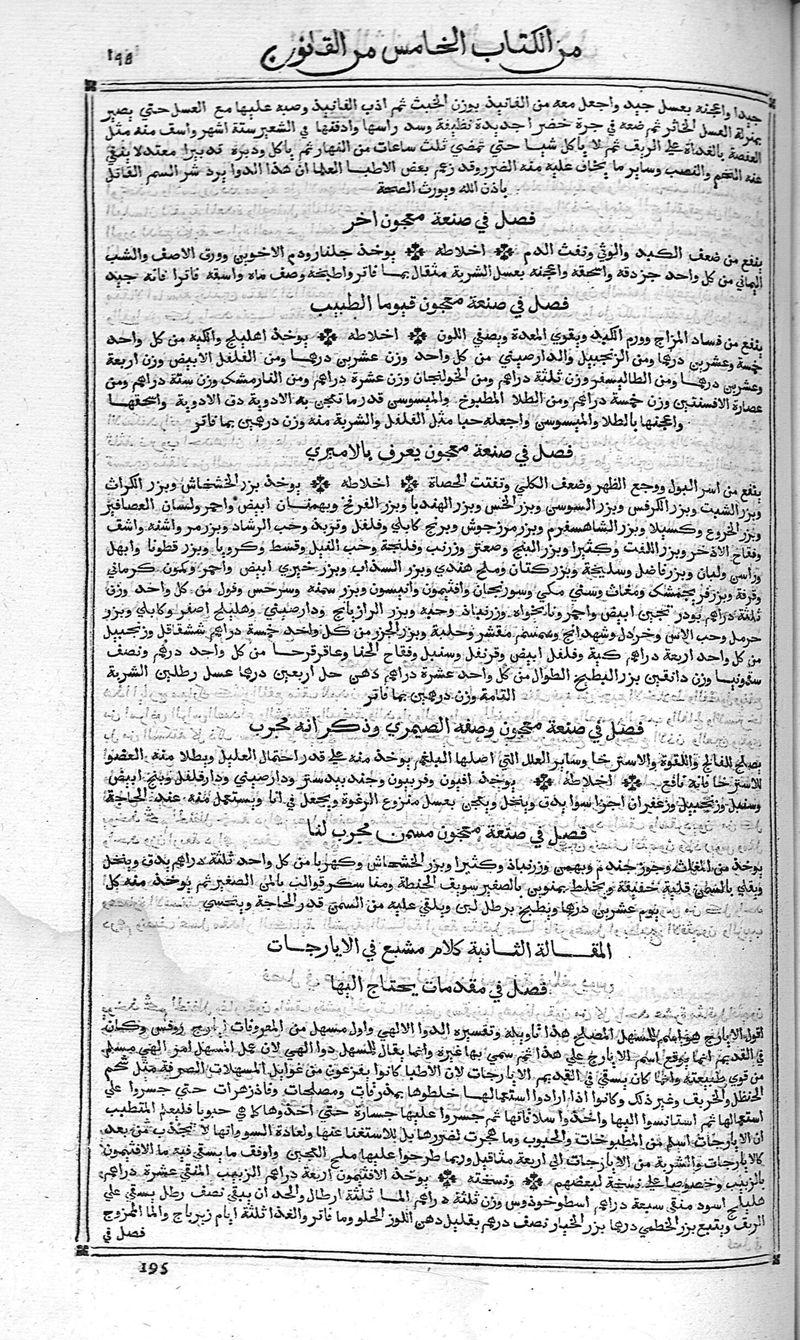 من الكتاب الخامس من القانون
١٩٥
جيدا واعجنه بعسل جيد واجعل معه من الفانيذ بوزن الخبث ثم اذب الفانيذ وصبه عليها مع العسل حتي يصير
بمنزلة العسل الخاثر ثم ضعه في جرة خضرا جديدة نظيفة وسد راسها وادفنها في الشعير ستة اشهر واسف منه مثل
العفصة بالغداة علي الريق ثم لا ياكل شيا حتي تمضي ثلث ساعات من النهار ثم ياكل ودبره تدبيرا معتدلا ينفي
عنه التخم والنصب وساير ما يخاف عليه منه الضرر وقد زعم بعض الاطبا العلما ان هذا الدوا يرد شر السم القاتل
باذن الله ويورث الصحة
فصل في صنعة معجون اخر
ينفع من ضعف الكبد والوثي ونفث الدم اخلاطه يوخذ جلنار ودم الاخوين وورق الاصف والشب
اليماني من كل واحد جز دقه واسحقه واعجنه بعسل الشربة مثقال بما فاتر واطبخه وصف ماه واسقه فاترا فانه جيد
فصل في صنعة معجون قيوما الطبيب
ينفع من فساد المزاج وورم الكبد ويقوي المعدة ويصفي اللون اخلاطه يوخذ اهليلج واكليه من كل واحد
خمسة وعشرين درهما ومن الزنجبيل والدارصيني من كل واحد وزن عشرين درهما ومن الفلفل الابيض وزن اربعة
وعشرين درهما ومن الطاليسفر وزن ثلثة دراهم ومن الخولنجان وزن عشرة دراهم ومن الفارمشك وزن ستة دراهم ومن
عصارة الافسنتين وزن خمسة دراهم ومن الطلا المطبوخ والميسوسن قدر ما تعجن به الادوية دق الادوية واسحقها
واعجنها بالطلا والميسوسن واجعله حبا مثل الفلفل والشربة منه وزن درهمين بما فاتر
فصل في صنعة معجون يعرف بالاميري
ينفع من اسر البول ووجع الظهر وضعف الكلي وتفتت الحصاة اخلاطه يوخذ بزر الخشخاش وبزر الكراث
وبزر الشبت وبزر الكرفس وبزر السوسي وبزر الخس وبزر الهندبا وبزر الفرفخ وبهمنان ابيض واحمر ولسان العصافير
وبزر الخروع وكسيلا وبزر الشاهسفرم وبزر مرزجوش وبرنج كابلي وفلفل وتربد وحب الرشاد وبزر مر واشنه واشق
وفقاح الاذخر وبزر اللفت وكثيرا وبزر البنج وصعتر وزرنب وفلنجة وحب الفيل وقسط وكرويا وبزر قطونا وابهل
وراسن ولبان وبزر فاضل وسليخة وبزر كتان وملح هندي وبزر السذاب وبزر خيري ابيض واحمر وكمون كرماني
وقرفة وبزر فرنجمشك ومغاث وسني مكي وسورنجان وافتيمون وانيسون وبزر سمنه وسرخس وفول من كل واحد وزن
ثلثة دراهم بوذر تجين ابيض واحمر ونانخواه وزرنباذ وحبه وبزر الرازيانج ودارصيني وهليلج اصفر وكابلي وبزر
حرمل وحب الاس وخردل وشهدانج وسمسم مقشر وحلبة وبزر الجزر من كل واحد خمسة دراهم شقاقل وزنجبيل
من كل واحد اربعة دراهم كبة وفلفل ابيض وقرنفل وسنبل وفقاح الحنا وعاقرقرحا من كل واحد درهم ونصف
سقمونيا وزن دانقين بزر البطيخ الطوال من كل واحد عشرة دراهم دهن حل اربعين درهما عسل رطلين الشربة
التامة وزن درهمين بما فاتر
فصل في صنعة معجون وصفه الصيمري وذكر انه مجرب
يصلح للفالج واللقوة والاسترخا وساير العلل التي اصلها البلغم يوخذ منه علي قدر احتمال العليل ويطلا منه العضو
للاسترخا فانه نافع اخلاطه يوخذ افيون وفربيون وجندبيدستر ودارصيني ودارفلفل وبنج ابيض
وسنبل وزنجبيل وزعفران اجزا سوا يدق وينخل ويعجن بعسل منزوع الرغوة ويجعل في انا ويستعمل منه عند الحاجة
فصل في صنعة معجون مسمن مجرب لنا
يوخذ من المغاث وجوز جندم وبهمن وزرنباذ وكثيرا وبزر الخشخاش وكهربا من كل واحد ثلثة دراهم يدق وينخل
ويغلي بالسمن قلية خفيفة ويخلط بمنوين بالصغير سويق الحنطة ومنا سكر قوالب بالمن الصغير ثم يوخذ منه كل
يوم عشرين درهما ويطبخ برطل لبن ويلقي عليه من السمن قدر الحاجة ويتحسي
المقالة الثانية كلام مشبع في الايارجات
فصل في مقدمات يحتاج اليها
اقول الايارج هو اسم للمسهل المصلح هذا تاويله وتفسيره الدوا الالهي واول مسهل من المعروفات ايارج روفس وكان
في القديم انما يوقع اسم الايارج علي هذا ثم سمي بها غيره وانما يقال للمسهل دوا الهي لان عمل المسهل امر الهي مسلم
من قوي طبيعته وانما كان يسقي في القديم الايارجات لان الاطبا كانوا يفزعون من غوايل المسهلات الصرفة مثل شحم
الحنظل والخربق وغير ذلك وكانوا اذا ارادوا استعمالها خلطوها بمدرقات ومصلحات وفاذزهرات حتي جسروا علي
استعمالها ثم استانسوا اليها واخذوا سلافاتها ثم جسروا عليها جسارة حتي اخذوها كما هي حبوبا فليعلم المتطبب
ان الايارجات اسلم من المطبوخات والحبوب وما هجرت لضررها بل للاستغنا عنها ولعادة السو وانها لا تجذب من بعد
كالايارجات والشربة من الايارجات الي اربعة مثاقيل وربما طرحوا عليها ملح العجين واوفق ما يسقي فيه ما الافتيمون
بالزبيب وخصوصا علي نسخة لبعضهم ونسخته يوخذ الافتيمون اربعة دراهم الزبيب المنقي عشرة دراهم
هليلج اسود منقي سبعة دراهم اسطوخوذوس وزن ثلثة دراهم الما ثلثة ارطال والحد ان يبقي نصف رطل يسقي علي
الريق ويتبع بزر الخطمي درهما بزر الخيار نصف درهم بقليل دهن اللوز الحلو وما فاتر والغذا ثلثة ايام زيرباج والما الممزوج
فصل في
195